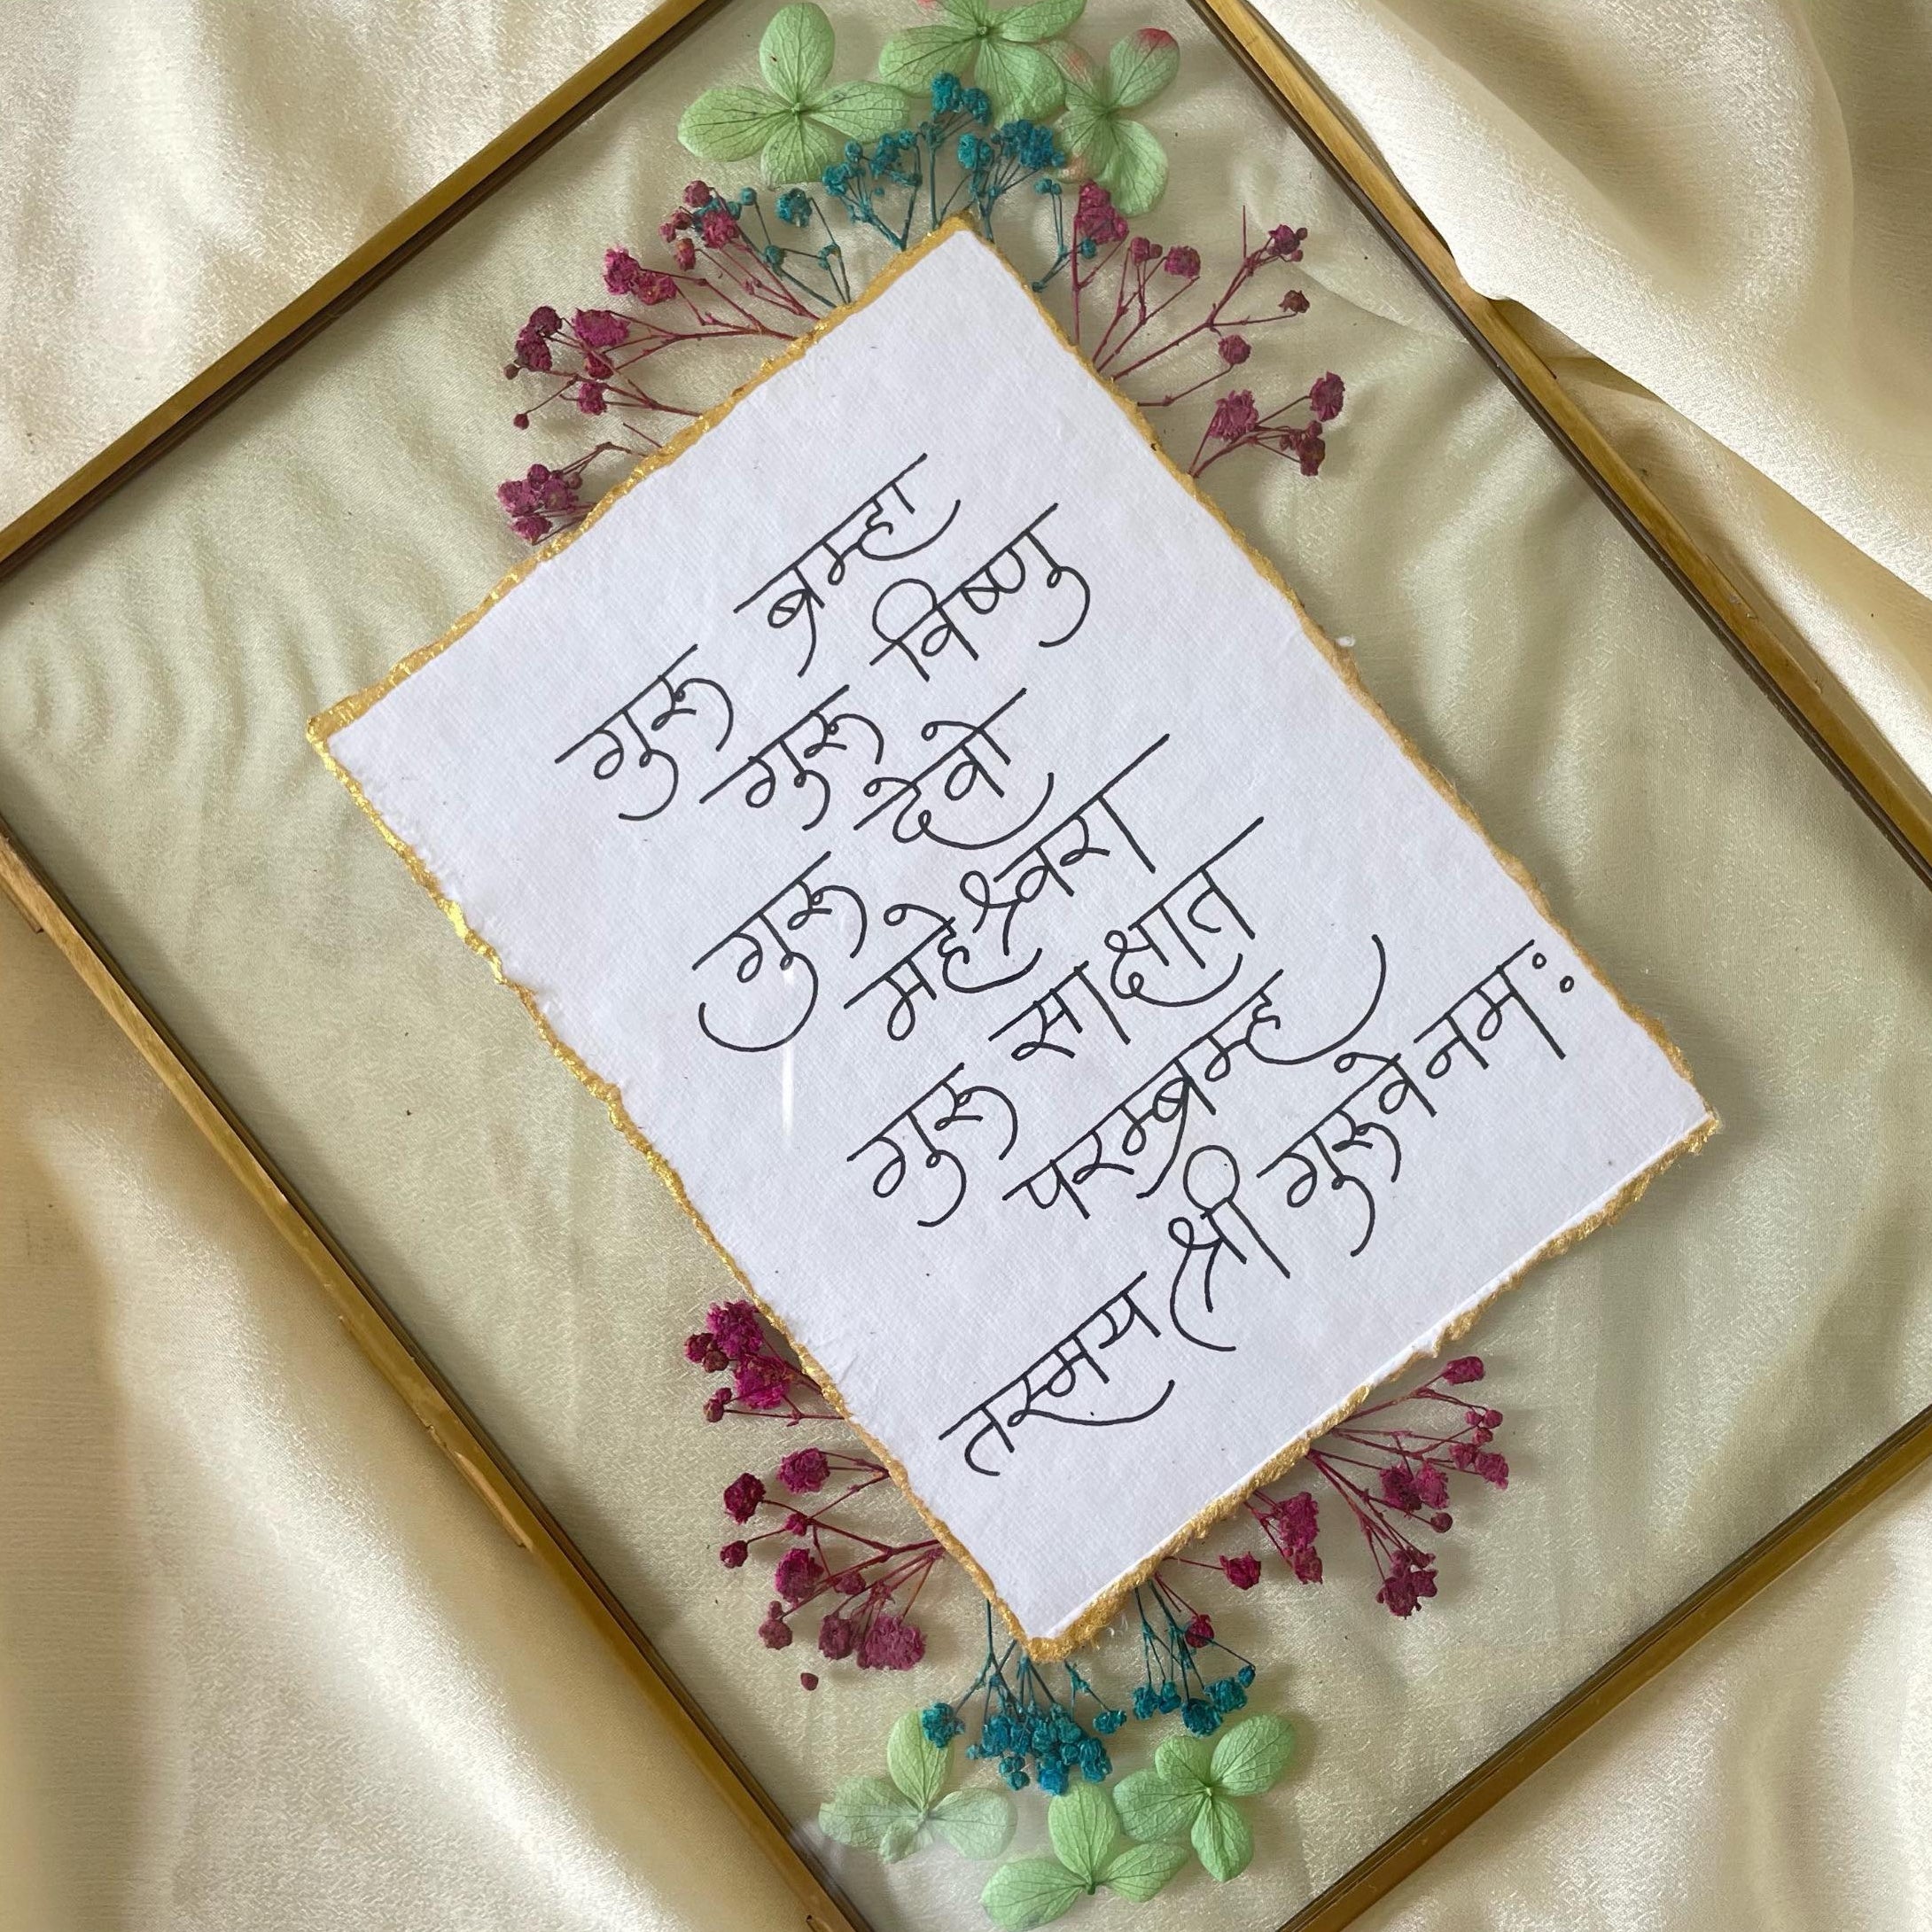 गुरू ब्रम्हा
गुरू विष्णु
गुरू देवो
महेश्वरा
गुरू साक्षात
परमब्रम्ह
तस्मय श्री गुरूवे नमः